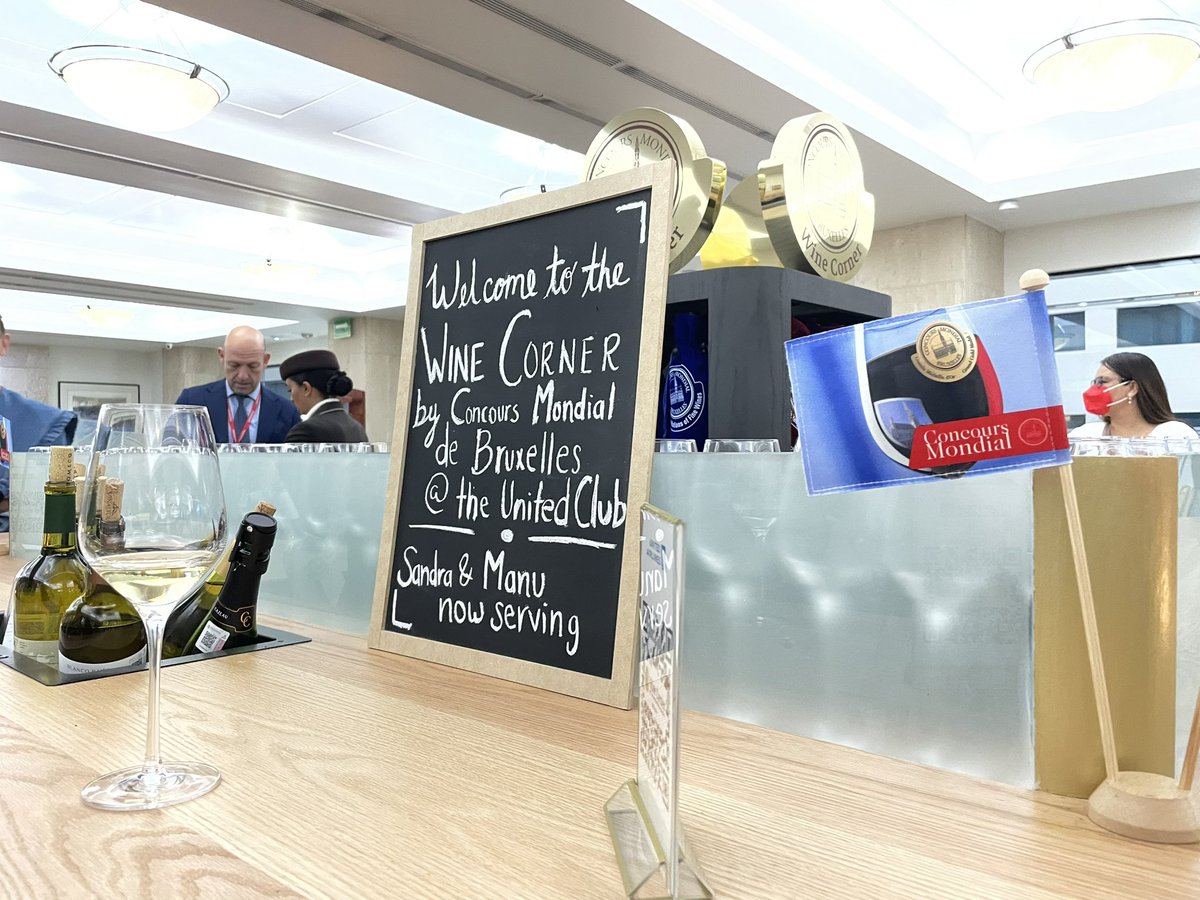 Welcome to the
WINE CORNER
by Concours Mondial
de Bruxelles
@ the United Club
Sandra & Manu
now serving
CONCOURS MONDIAL
Wine Corner
Concours
Mondial